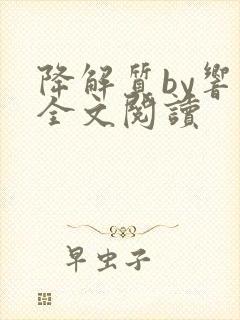 降解质by響
全文閱讀
早虫子